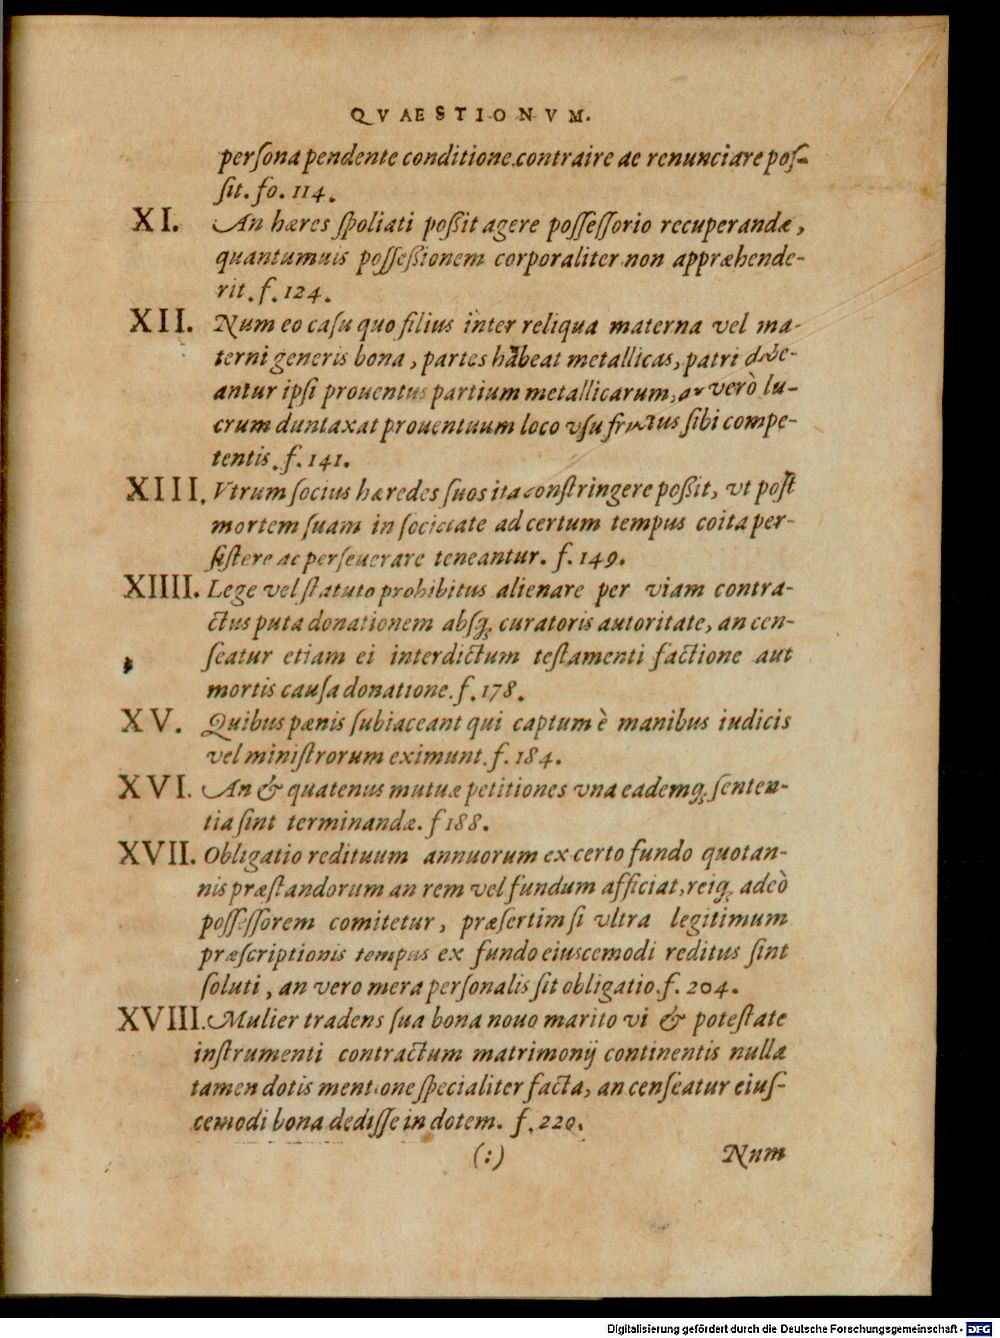 QVAESTIONVM.
perſona pendente conditione contraire ac renunciare poſ-
ſit. fo. 114.
XI. An hæres ſpoliati poßit agere poſſeſſorio recuperandæ,
quantumuis poſſeßionem corporaliter non appræhende-
rit. f. 124.
XII. Num eo caſu quo filius inter reliqua materna vel ma-
terni generis bona, partes habeat metallicas, patri debe-
antur ipſi prouentus partium metallicarum, an verò lu-
crum duntaxat prouentuum loco vſufructus ſibi compe-
tentis. f. 141.
XIII. Vtrum ſocius hæredes ſuos ita conſtringere poßit, vt poſt
mortem ſuam in ſocietate ad certum tempus coita per-
ſiſtere ac perſeuerare teneantur. f. 149.
XIIII. Lege vel ſtatuto prohibitus alienare per viam contra-
ctus puta donationem abſq; curatoris autoritate, an cen-
ſeatur etiam ei interdictum teſtamenti factione aut
mortis cauſa donatione. f. 178.
XV. Quibus pænis ſubiaceant qui captum è manibus iudicis
vel miniſtrorum eximunt. f. 184.
XVI. An & quatenus mutuæ petitiones vna eademq; ſenten-
tia ſint terminandæ. f 188.
XVII. Obligatio redituum annuorum ex certo fundo quotan-
nis præſtandorum an rem vel fundum afficiat, reiq; adeò
poſſeſſorem comitetur, præſertim ſi vltra legitimum
præſcriptionis tempus ex fundo eiuscemodi reditus ſint
ſoluti, an vero mera perſonalis ſit obligatio. f. 204.
XVIII. Mulier tradens ſua bona nouo marito vi & poteſtate
inſtrumenti contractum matrimonij continentis nulla
tamen dotis mentione ſpecialiter facta, an cenſeatur eiuſ-
cemodi bona dediſſe in dotem. f. 220.
(:) Num
Digitalisierung gefördert durch die Deutsche Forschungsgemeinschaft - DFG